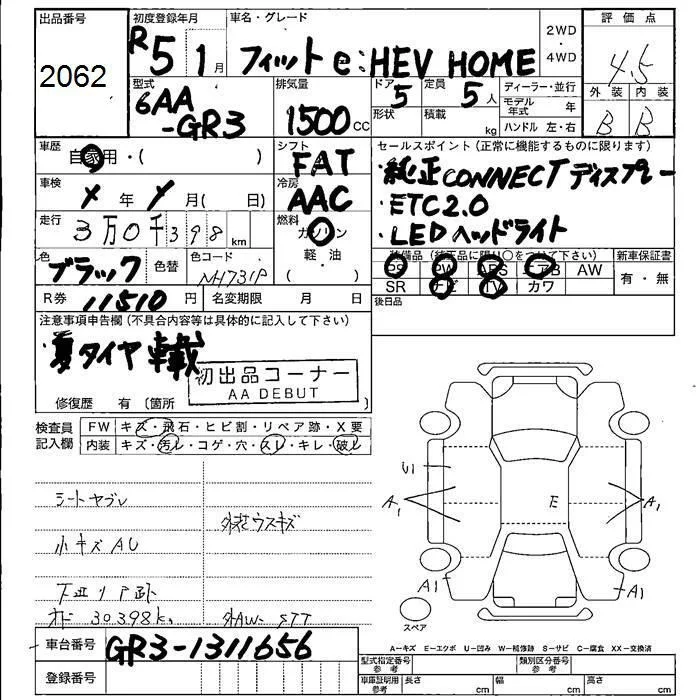 出品番号 初度登録年月 車名・グレード 2WD・4WD 評価点
2062 R5 1月 フィット e:HEV HOME 4.5
型式 排気量 ドア形状 定員 ディーラー・並行 外装 内装
6AA-GR3 1500cc 5 5人 モデル年式 年 B B
積載 kg ハンドル 左・右
車歴 自家用・( ) シフト FAT セールスポイント(正常に機能するものに限ります)
車検 年 月( 日) 冷房 AAC ・純正CONNECTディスプレー
・ETC2.0
走行 3万0千398km 燃料 ガソリン・軽油・( ) ・LEDヘッドライト
色 ブラック 色替 色コード NH731P 装備品(純正品に限り○をつけて下さい) 新車保証書
PS PW ABS エアB AW 有・無
SR ナビ TV カワ
R券 11510円 名変期限 月 日 後日品
注意事項申告欄(不具合内容等は具体的に記入して下さい)
・夏タイヤ車載
初出品コーナー
AA DEBUT
修復歴 有〔箇所 〕
検査員記入欄 FW キズ・飛石・ヒビ割・リペア跡・X要
内装 キズ・汚レ・コゲ・穴・スレ・キレ・破レ
シートヤブレ
外装ウスキズ
小キズAU
下エリア跡
オド 30,398k
U1
A1 E A1
A1 A1
スペア
車台番号 GR3-1311656
A-キズ E-エクボ U-凹み W-補修跡 S-サビ C-腐食 XX-交換済
登録番号
型式指定番号 参考 類別区分番号 参考
車庫証明用 参考 長さ cm 幅 cm 高さ cm